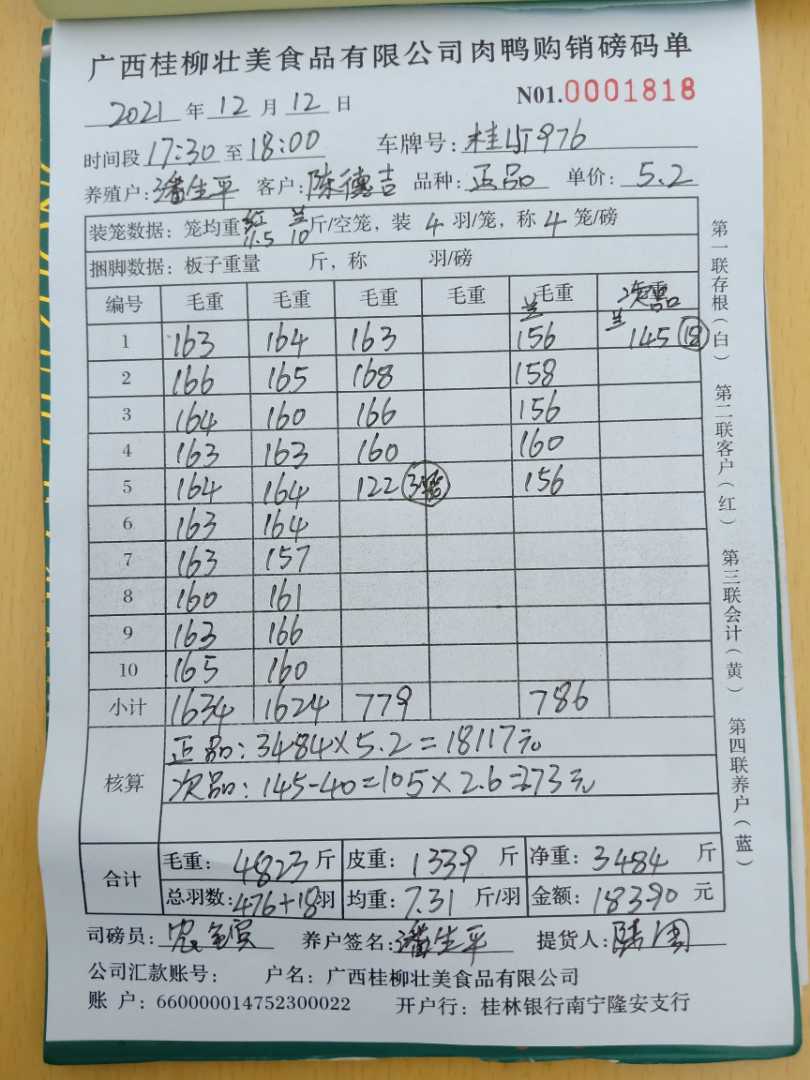 广西桂柳壮美食品有限公司肉鸭购销磅码单
2021 年 12 月 12 日 N01.0001818
时间段 17:30 至 18:00 车牌号: 桂 976
养殖户: 潘生平 客户: 陈德吉 品种: 正品 单价: 5.2
装笼数据: 笼均重 红11.5 兰10 斤/空笼, 装 4 羽/笼, 称 4 笼/磅
捆脚数据: 板子重量 斤, 称 羽/磅
编号 毛重 毛重 毛重 毛重 兰 毛重 次品
1 163 164 163 156 兰 145 18
2 166 165 168 158
3 164 160 166 156
4 163 163 160 160
5 164 164 122 3笼 156
6 163 164
7 163 157
8 160 161
9 163 166
10 165 160
小计 1634 1624 779 786
核算 正品: 3484×5.2=18117元
次品: 145-40=105×2.6=273元
合计 毛重: 4823 斤 皮重: 1339 斤 净重: 3484 斤
总羽数: 476+18羽 均重: 7.31 斤/羽 金额: 18390 元
司磅员: 养户签名: 潘生平 提货人: 陆
公司汇款账号: 户名: 广西桂柳壮美食品有限公司
账 户: 660000014752300022 开户行: 桂林银行南宁隆安支行
第一联存根(白) 第二联客户(红) 第三联会计(黄) 第四联养户(蓝)